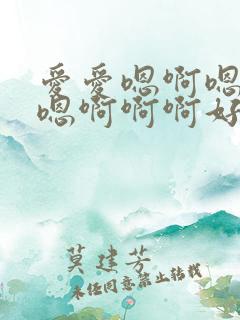 爱爱嗯啊嗯
嗯啊啊啊好
莫建芳
未经同意禁止转载